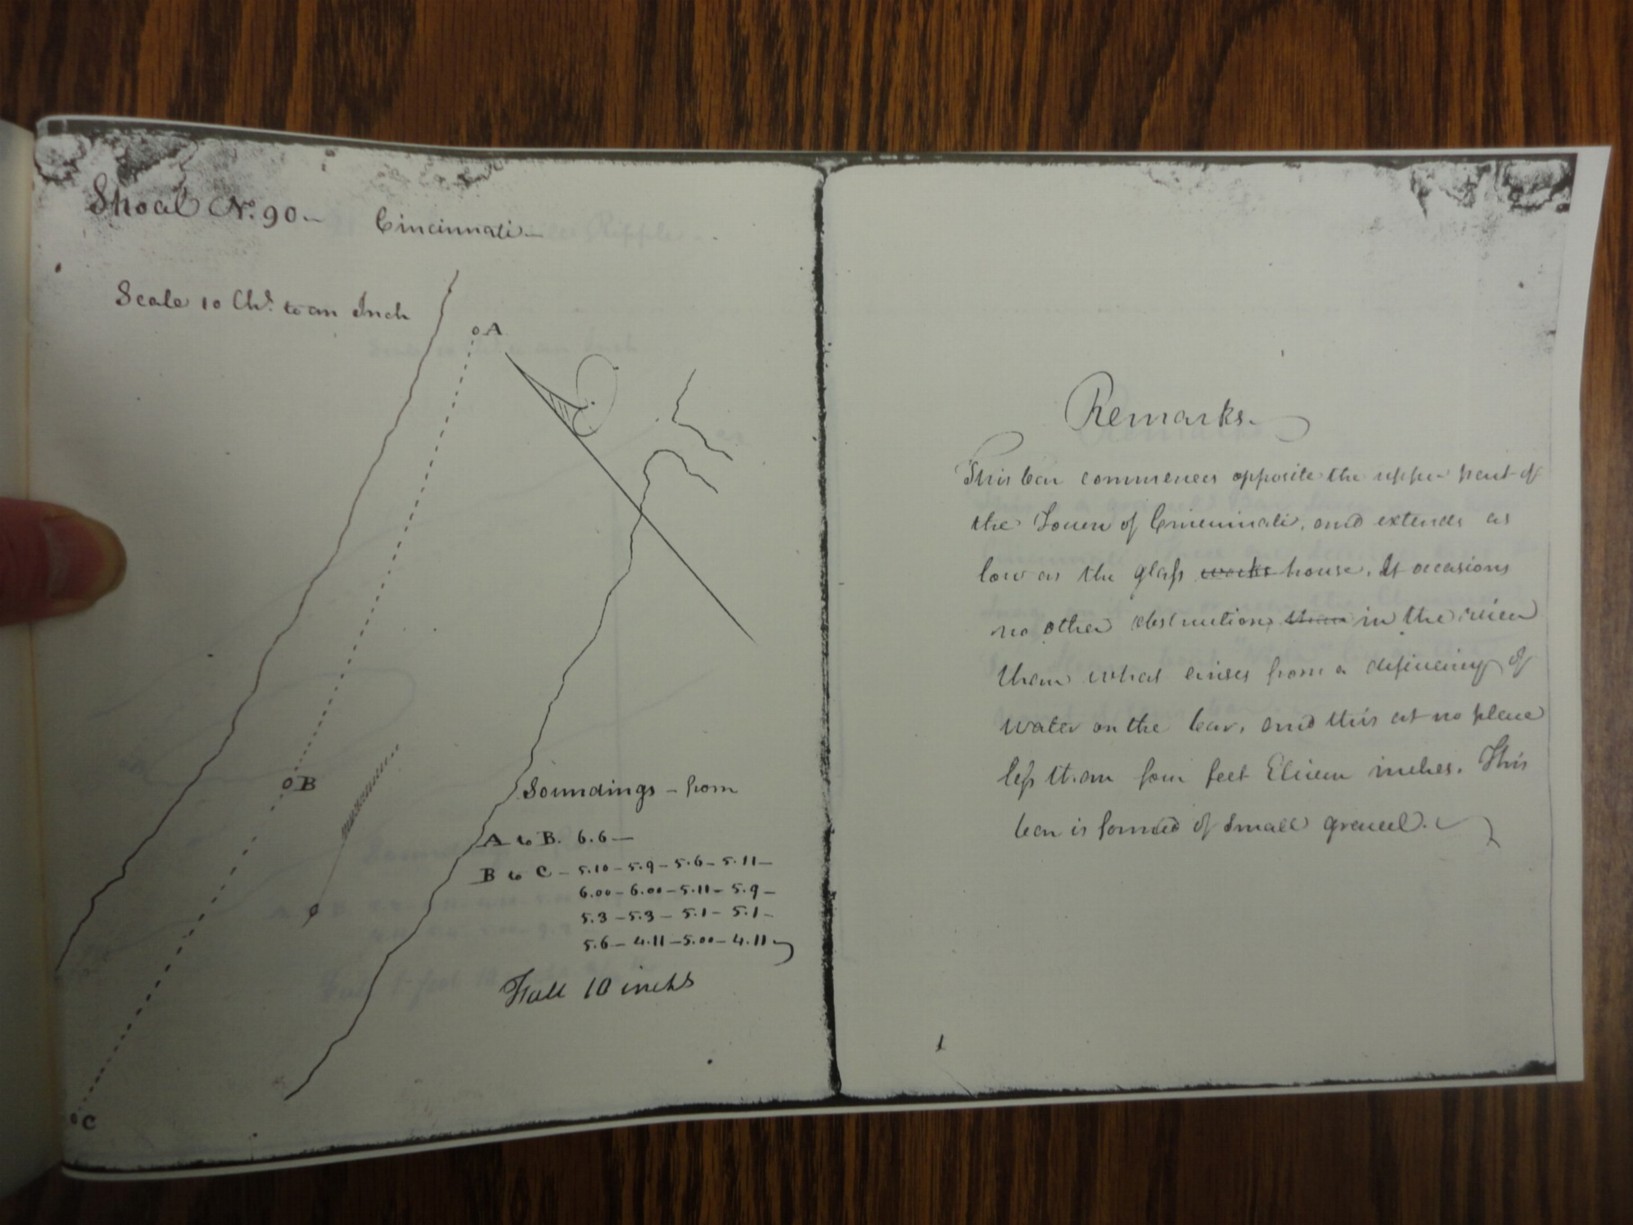 Shoal No. 90.
Cincinnati
Scale 10 Chs. to an Inch
A
B
C
Soundings - from
A to B. 6.6 —
B to C - 5.10 - 5.9 - 5.6 - 5.11 -
6.00 - 6.00 - 5.11 - 5.9 -
5.3 - 5.3 - 5.1 - 5.1 -
5.6 - 4.11 - 5.00 - 4.11
Fall 10 inchs
Remarks.
This bar commences opposite the upper part of
the Town of Cincinnati, and extends as
low as the glass works house. It occasions
no other obstruction than in the river
than what arises from a deficiency of
water on the bar, and this at no place
less than four feet Eleven inches. This
bar is formed of small gravel.